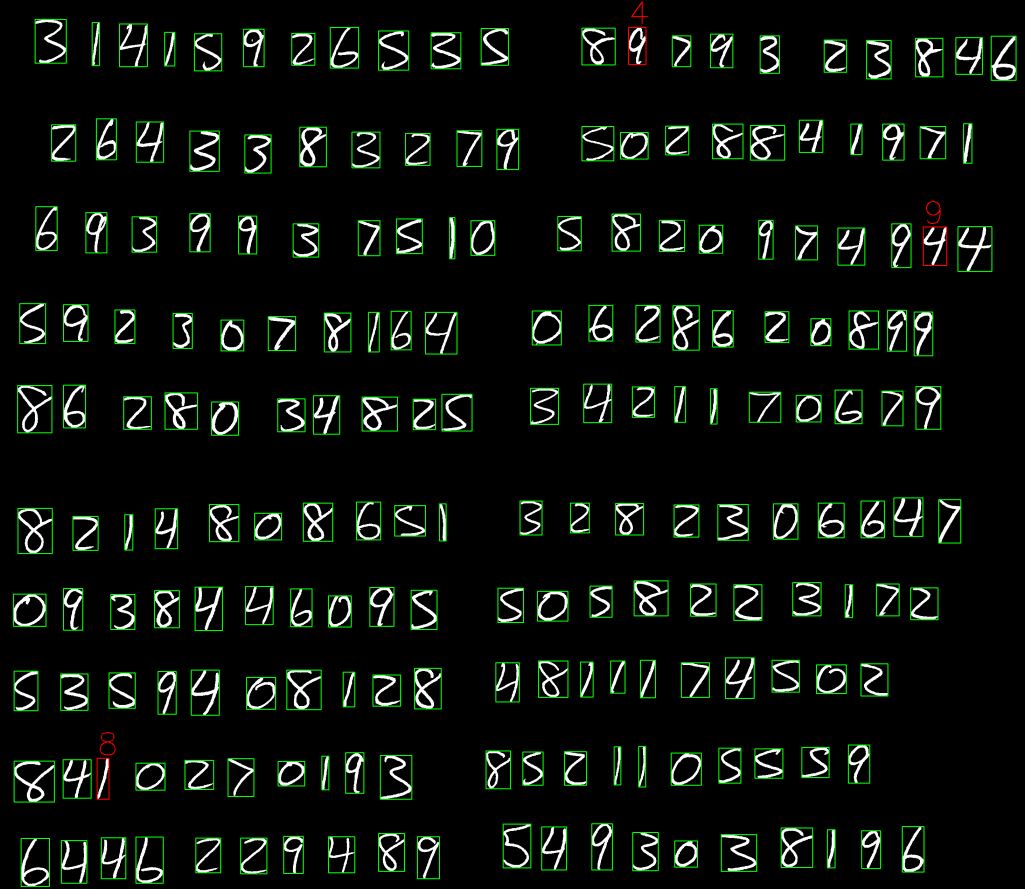 4
3 1 4 1 5 9 2 6 5 3 5 8 9 7 9 3 2 3 8 4 6
2 6 4 3 3 8 3 2 7 9 5 0 2 8 8 4 1 9 7 1
9
6 9 3 9 9 3 7 5 1 0 5 8 2 0 9 7 4 9 4 4
5 9 2 3 0 7 8 1 6 4 0 6 2 8 6 2 0 8 9 9
8 6 2 8 0 3 4 8 2 5 3 4 2 1 1 7 0 6 7 9
8 2 1 4 8 0 8 6 5 1 3 2 8 2 3 0 6 6 4 7
0 9 3 8 4 4 6 0 9 5 5 0 5 8 2 2 3 1 7 2
5 3 5 9 4 0 8 1 2 8 4 8 1 1 1 7 4 5 0 2
8
8 4 1 0 2 7 0 1 9 3 8 5 2 1 1 0 5 5 5 9
6 4 4 6 2 2 9 4 8 9 5 4 9 3 0 3 8 1 9 6